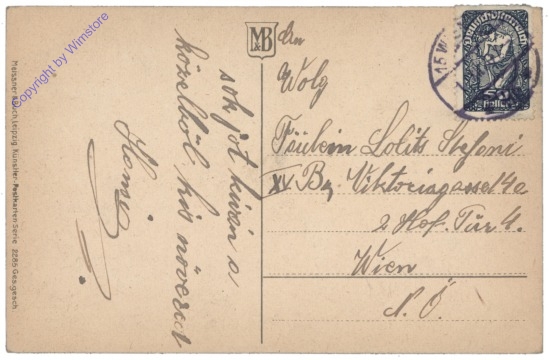 Copyright by Wimstore
Meissner & Buch, Leipzig Künstler-Postkarten Serie 2285 Ges. gesch.
M&B
sok jót kiván s
közelböl kis növered
An
Wolg
Fräulein Lolits Stefani
XV Bz, Viktoriagasse 4a
2 Hof. Tür 4.
Wien
N. Ö.
Deutschösterreich
Heller
15 W